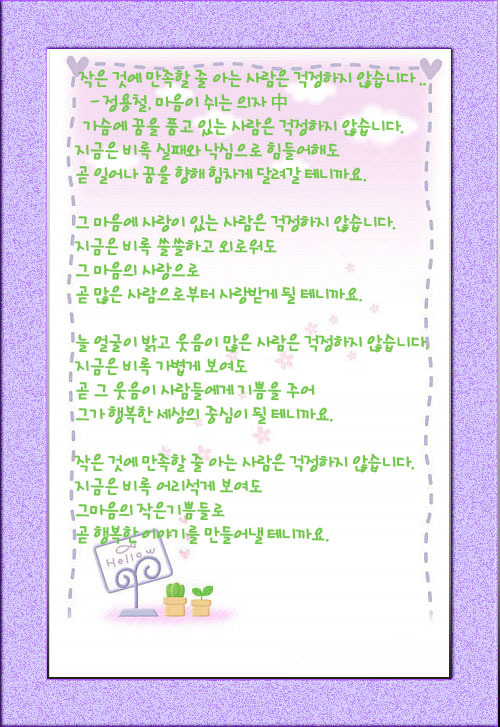 작은 것에 만족할 줄 아는 사람은 걱정하지 않습니다..
- 정용철, 마음이 쉬는 의자 中
가슴에 꿈을 품고 있는 사람은 걱정하지 않습니다.
지금은 비록 실패와 낙심으로 힘들어해도
곧 일어나 꿈을 향해 힘차게 달려갈 테니까요.
그 마음에 사랑이 있는 사람은 걱정하지 않습니다.
지금은 비록 쓸쓸하고 외로워도
그 마음의 사랑으로
곧 많은 사람으로부터 사랑받게 될 테니까요.
늘 얼굴이 밝고 웃음이 많은 사람은 걱정하지 않습니다.
지금은 비록 가볍게 보여도
곧 그 웃음이 사람들에게 기쁨을 주어
그가 행복한 세상의 중심이 될 테니까요.
작은 것에 만족할 줄 아는 사람은 걱정하지 않습니다.
지금은 비록 어리석게 보여도
그마음의 작은기쁨들로
곧 행복한 이야기를 만들어낼 테니까요.
Hellow